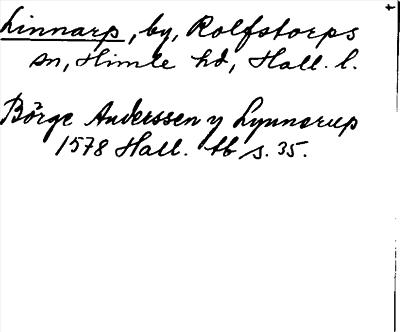 Linnarp, by, Rolfstorps
sn, Himle hd, Hall. l.
Börge Anderssen y Lynnerup
1578 Hall. tb s. 35.